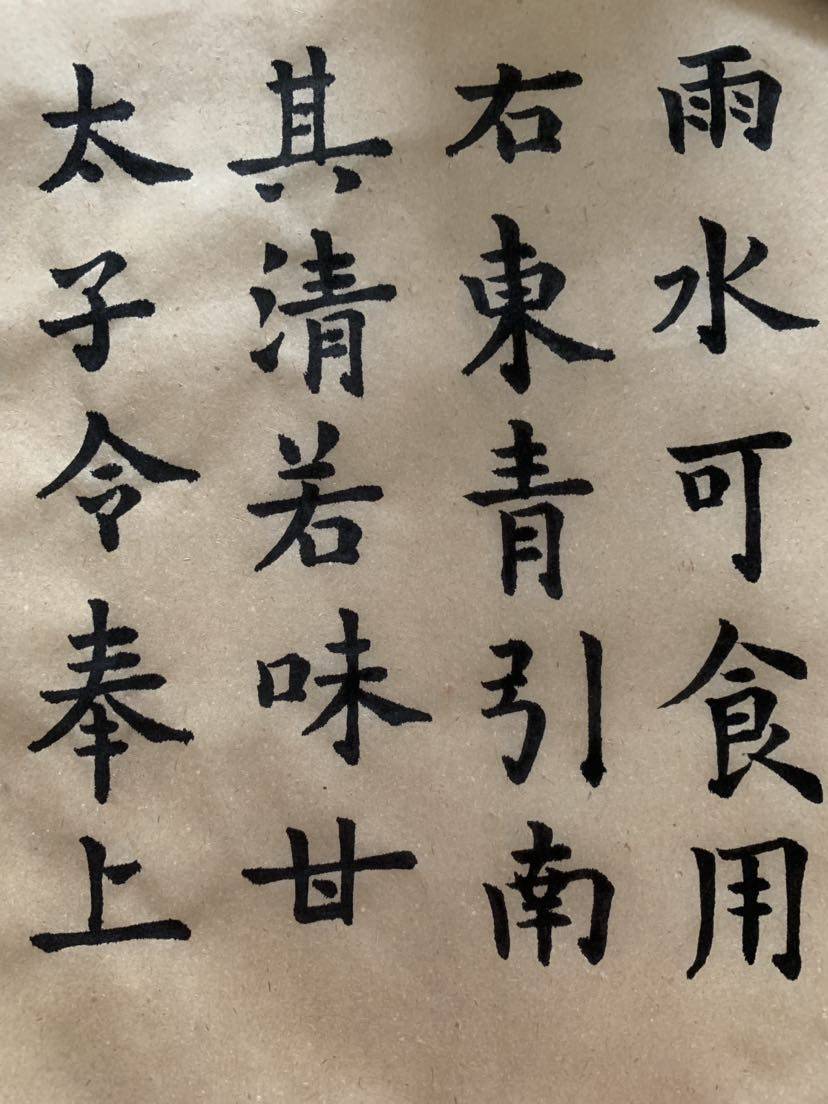 雨水可食用
右東青引南
其清若味甘
太子令奉上